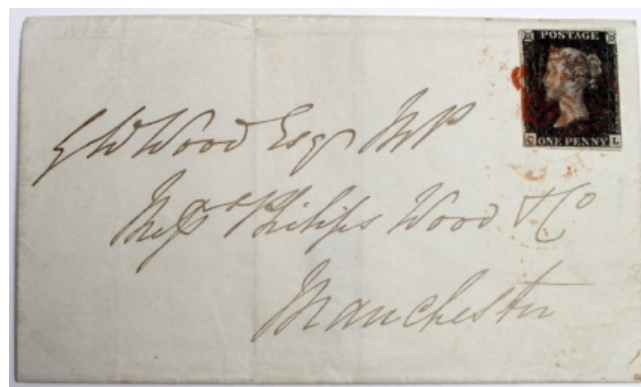 POSTAGE
ONE PENNY L
G W Wood Esqr MP
Messrs Philips Wood & Co
Manchester